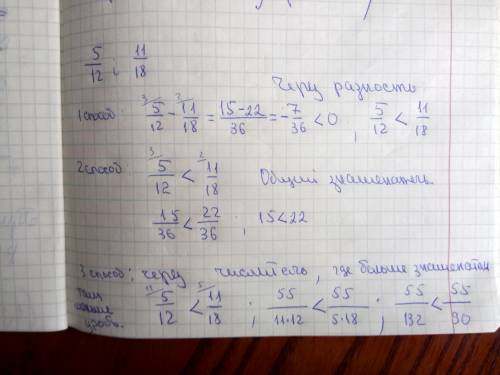 5/12 и 11/18
Через разность
1 способ: ³⁄5/12 - ²⁄11/18 = 15-22/36 = -7/36 < 0, 5/12 < 11/18
2 способ ³⁄5/12 < ²⁄11/18 Общий знаменатель
15/36 < 22/36 ; 15 < 22
3 способ: через числитель, где больше знаменатель
там
дробь. ¹¹⁄5/12 < ⁵⁄11/18 ; 55/11·12 < 55/5·18 ; 55/132 < 55/90